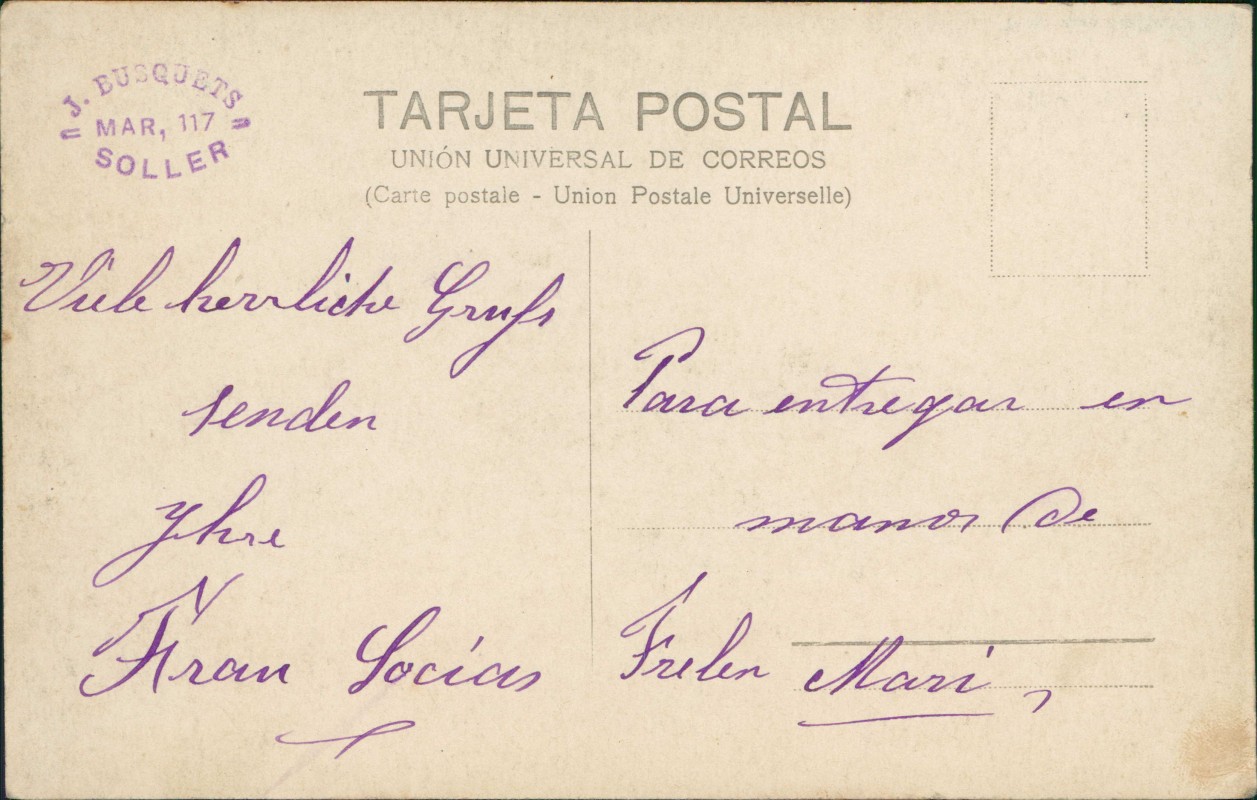 J. BUSQUETS
MAR, 117
SOLLER
TARJETA POSTAL
UNIÓN UNIVERSAL DE CORREOS
(Carte postale - Union Postale Universelle)
Viele herrliche Grufs
senden
Yhre
Fran Socías
Para entregar en
manos de
Frelen Mari,